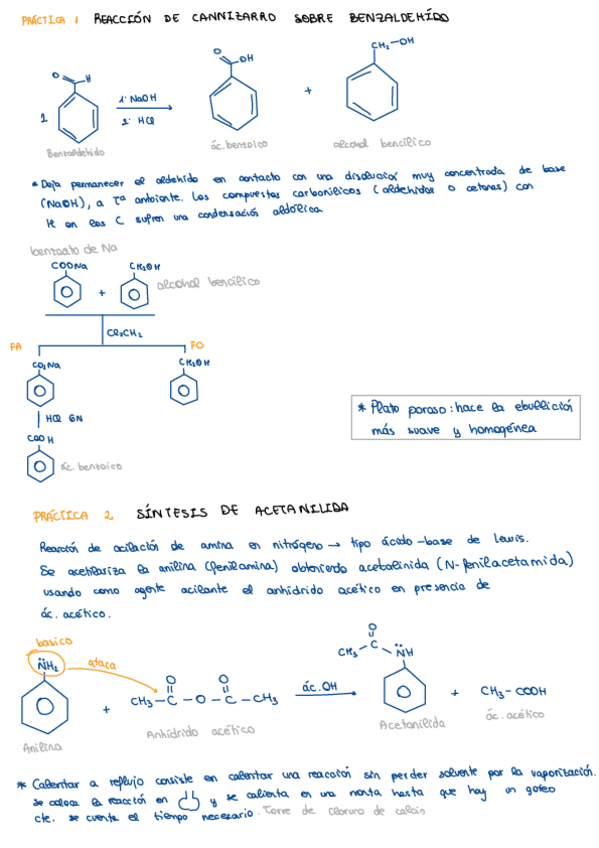 PRÁCTICA 1 REACCIÓN DE CANNIZARRO SOBRE BENZALDEHÍDO
2
O H
1º NaOH
2º HCl
O OH
+
CH₂-OH
Benzaldehído
ác. benzoico
alcohol bencílico
* Deja permanecer el aldehído en contacto con una disolución muy concentrada de base
(NaOH), a Tª ambiente. Los compuestos carbonílicos (aldehidos o cetonas) con
H en los C sufren una condensación aldólica.
benzoato de Na
COONa
+
CH₂OH
alcohol bencílico
Cl₂CH₂
FA
FO
CO₂Na
CH₂OH
HCl 6N
COOH
ác. benzoico
* Plato poroso: hace la ebullición
más suave y homogénea
PRÁCTICA 2 SÍNTESIS DE ACETANILIDA
Reacción de acilación de amina en nitrógeno → tipo ácido-base de lewis.
Se acetilariza la anilina (fenilamina) obteniendo acetalinida (N-fenilacetamida)
usando como agente acilante el anhídrido acético en presencia de
ác. acético.
basico
NH₂
ataca
Anilina
+
CH₃-C-O-C-CH₃
O O
Anhídrido acético
ác.OH
O
CH₃-C-NH
Acetanilida
+
CH₃-COOH
ác. acético
* Calentar a reflujo consiste en calentar una reacción sin perder solvente por la vaporización.
se coloca la reacción en y se calienta en una manta hasta que hay un goteo
cte. se cuenta el tiempo necesario. Torre de cloruro de calcio